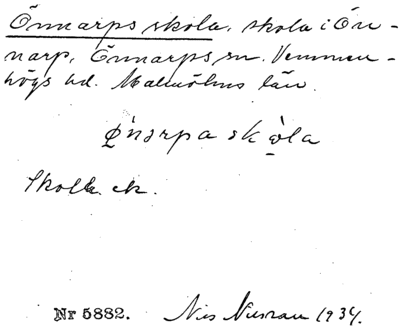 Önnarps skola, skola i Ön-
narp, Önnarps sn. Vemmen-
högs hd. Malmöhus län.
Ǿnarpa skò̤la
Skolk. ek.
Nr 5882. Nils 1934.